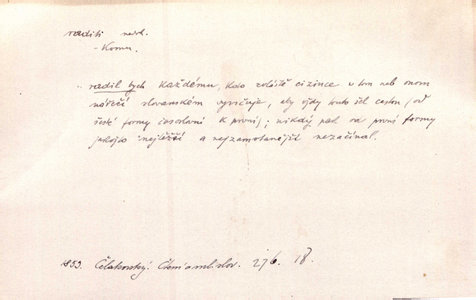 raditi ned.
- Komu.
radil bych každému, kdo zvláště cizince v tom neb onom
nářečí slovanském vyučuje, aby vždy touto šel cestou, od
šesté formy časování k první; nikdy pak od první formy
jakožto nejtěžší a nejzamotanější nezačínal.
1853. Čelakovský. Čtení o ml. slov. 276. 18.